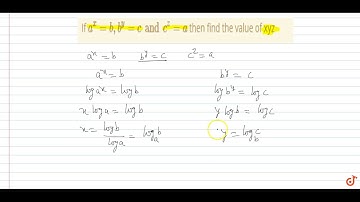 If a^x = b, b^y = c and c^z = a then find the value of xyz
a^x = b b^y = c c^z = a
a^x = b b^y = c
log a^x = log b log b^y = log c
x log a = log b y log b = log c
x = log b / log a = log_a b y = log_b c